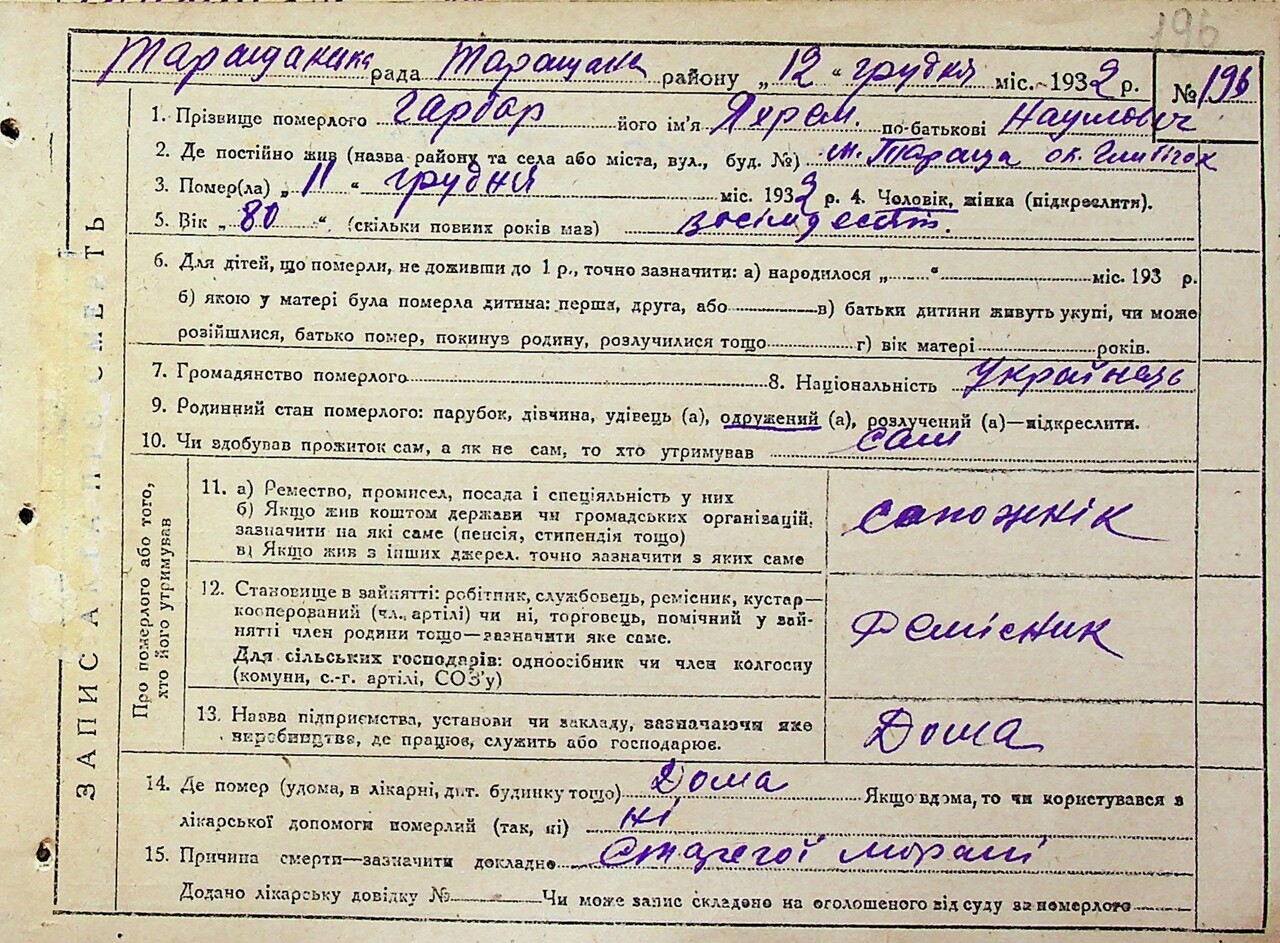 196
Таращанска рада Таращан району „12“ грудня міс. 1932 р. № 196
1. Прізвище померлого Гарбар його ім'я Яхрем. по-батькові Наумович
2. Де постійно жив (назва району та села або міста, вул., буд. №) м. Тараща ок.
3. Помер(ла) „11“ грудня міс. 1932 р. 4. Чоловік, жінка (підкреслити).
5. Вік „80“ (скільки повних років мав) восімдесят.
6. Для дітей, що померли, не доживши до 1 р., точно зазначити: а) народилося „ “ міс. 193 р.
б) якою у матері була померла дитина: перша, друга, або в) батьки дитини живуть укупі, чи може
розійшлися, батько помер, покинув родину, розлучилися тощо г) вік матері років.
7. Громадянство померлого 8. Національність Українець
9. Родинний стан померлого: парубок, дівчина, удівець (а), одружений (а), розлучений (а)—підкреслити.
10. Чи здобував прожиток сам, а як не сам, то хто утримував сам
ЗАПИС АКТА ПРО СМЕРТЬ
Про померлого або того,
хто його утримував
11. а) Ремество, промисел, посада і спеціяльність у них
б) Якщо жив коштом держави чи громадських організацій,
зазначити на які саме (пенсія, стипендія тощо)
в) Якщо жив з інших джерел. точно зазначити з яких саме
сапожнік
12. Становище в зайнятті: робітник, службовець, ремісник, кустар—
кооперований (чл. артілі) чи ні, торговець, помічний у зай-
нятті член родини тощо—зазначити яке саме.
Для сільських господарів: одноосібник чи член колгоспу
(комуни, с.-г. артілі, СОЗ'у)
Ремісник
13. Назва підприємства, установи чи закладу, зазначаючи яке
виробництво, де працює, служить або господарює.
Дома
14. Де помер (удома, в лікарні, дит. будинку тощо) Дома Якщо вдома, то чи користувався з
лікарської допомоги померлий (так, ні) ні
15. Причина смерти—зазначити докладно
Додано лікарську довідку № Чи може запис складено на оголошеного від суду за померлого